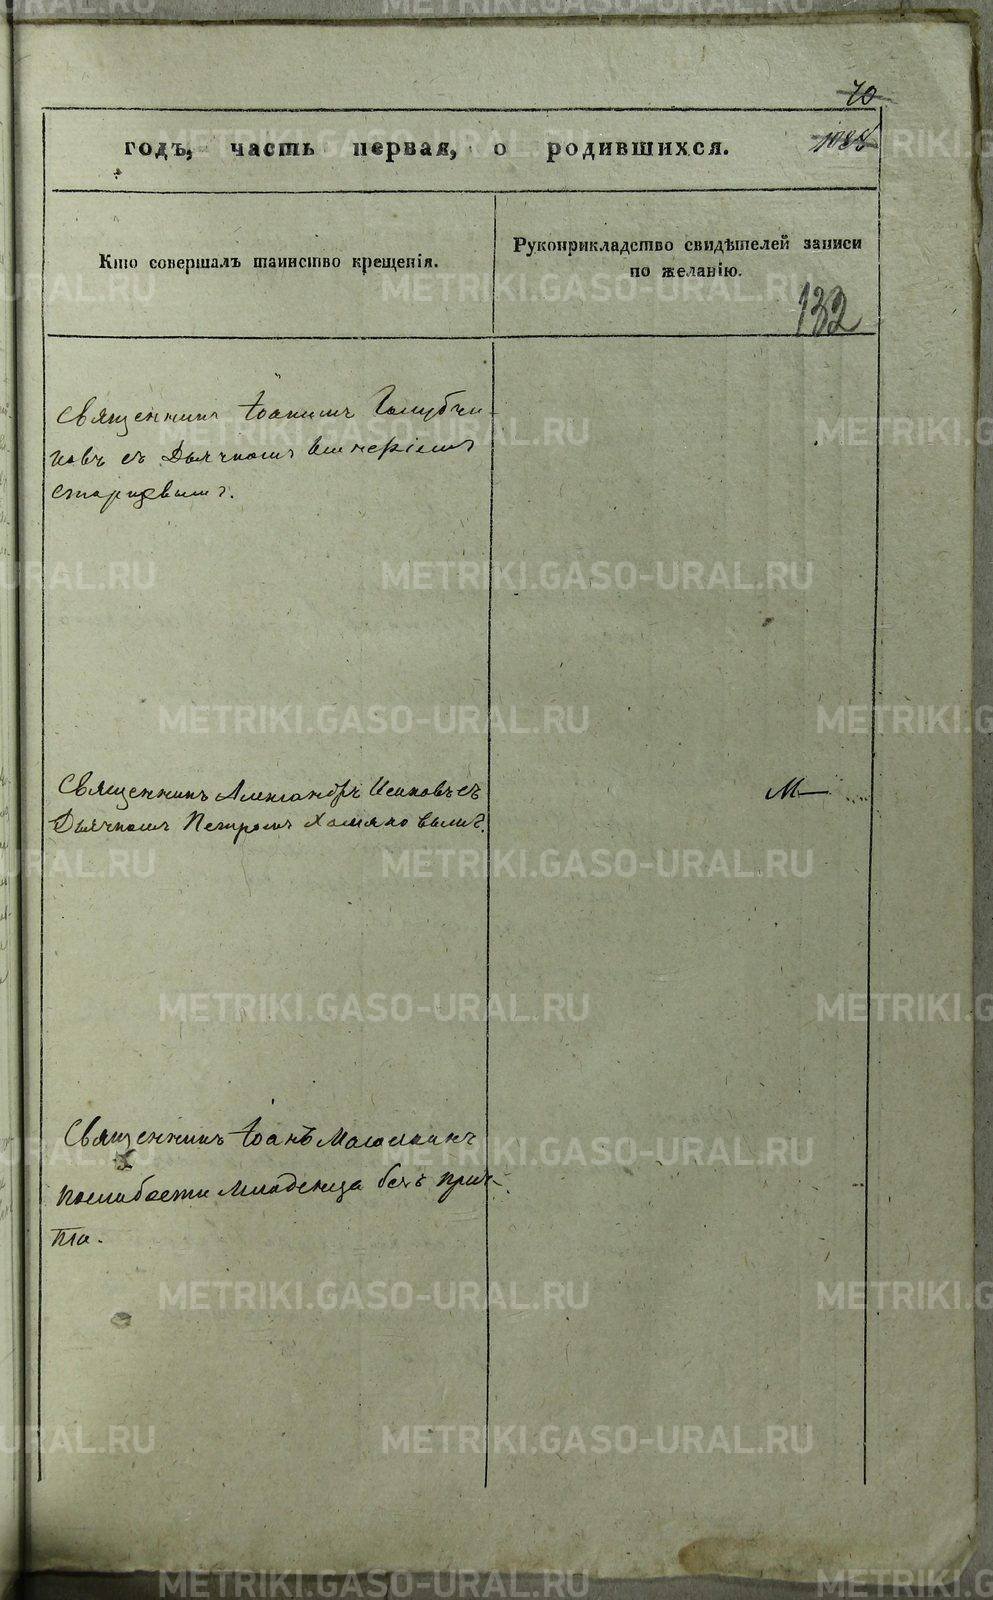 70
годъ, часть первая, о родившихся.
Кто совершалъ таинство крещенія.
Рукоприкладство свидѣтелей записи
по желанію.
132
Священникъ Іоакимъ Голубчи-
ковъ съ Дьячкомъ
Старцевымъ.
Священникъ Александръ Исаковъ съ
Дьячкомъ Петромъ Хомяковымъ.
М
Священникъ Іоаннъ
послабости младенца безъ прич-
та.
METRIKI.GASO-URAL.RU